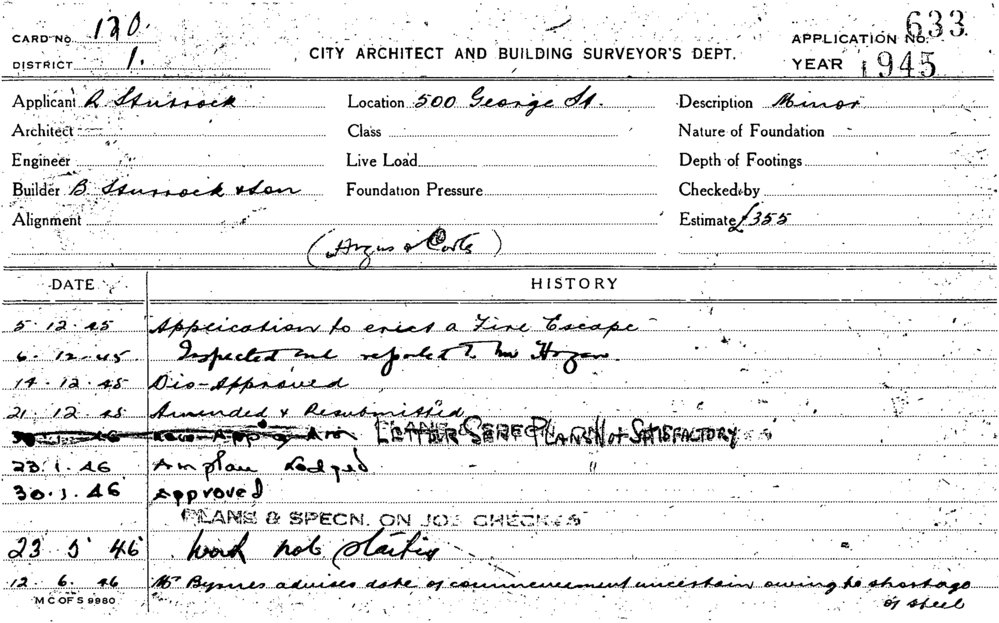 CARD No. 120.
DISTRICT 1.
CITY ARCHITECT AND BUILDING SURVEYOR'S DEPT.
APPLICATION No. 633
YEAR 1945
Applicant R. Sturrock Location 500 George St. Description Minor
Architect Class Nature of Foundation
Engineer Live Load Depth of Footings
Builder B. Sturrock & Son Foundation Pressure Checked by
Alignment Estimate £355
DATE HISTORY
5.12.45 Application to erect a Fire Escape
6.12.45 Inspected and reported to Mr Hogan.
14.12.45 Dis-Approved
21.12.45 Amended & Resubmitted
LETTER SENT PLANS Not SATISFACTORY
23.1.46 Am plan Lodged
30.1.46 Approved
PLANS & SPECN. ON JOB CHECKED
23 5 46 Work not started
12.6.46 Mr Byrnes advises date of commencement uncertain owing to shortage
of steel
M C OF S 9980